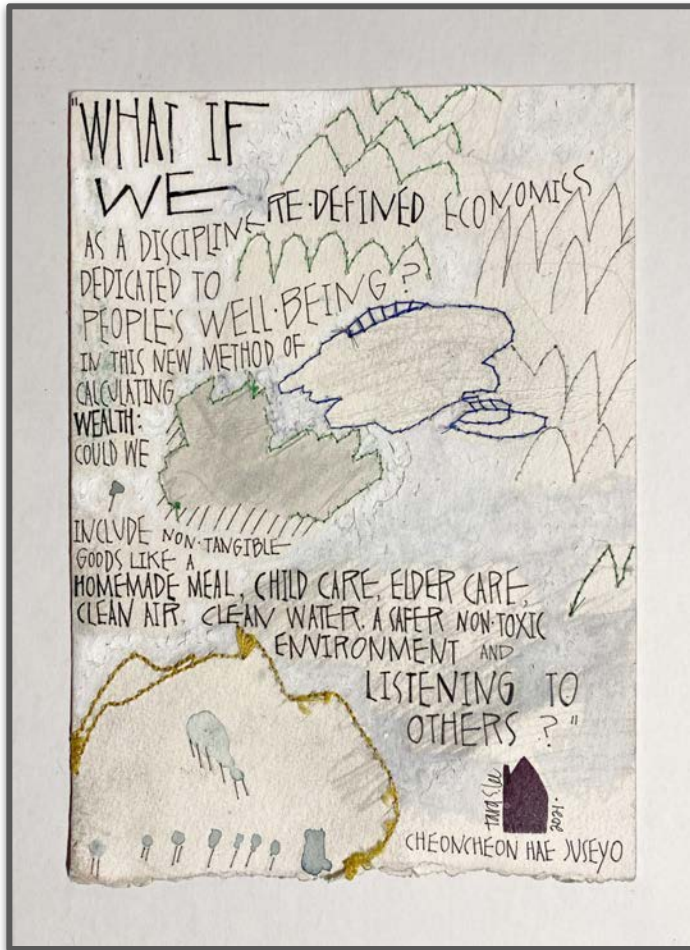 "WHAT IF
WE RE·DEFINED ECONOMICS
AS A DISCIPLINE
DEDICATED TO
PEOPLE'S WELL·BEING?
IN THIS NEW METHOD OF
CALCULATING
WEALTH:
COULD WE
INCLUDE NON·TANGIBLE
GOODS LIKE A
HOMEMADE MEAL, CHILD CARE, ELDER CARE,
CLEAN AIR, CLEAN WATER, A SAFER NON·TOXIC
ENVIRONMENT AND
LISTENING TO
OTHERS?"
tara s. lee
2021.
CHEONCHEON HAE JUSEYO